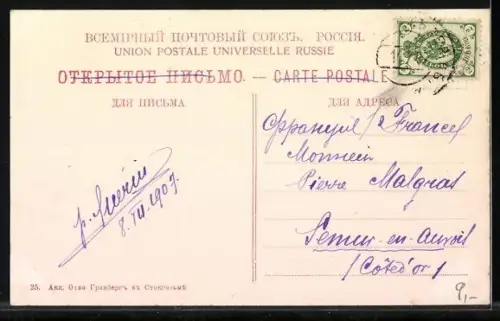 ВСЕМІРНЫЙ ПОЧТОВЫЙ СОЮЗЪ. РОССІЯ.
UNION POSTALE UNIVERSELLE RUSSIE
ОТКРЫТОЕ ПИСЬМО. — CARTE POSTALE
ДЛЯ ПИСЬМА
ДЛЯ АДРЕСА
Франція / France /
Monsieur
Pierre Malgras
Semur-en-Auxois
/ Côte d'or /
8. III. 1907.
25. Акц. О-тво Гранбергъ въ Стокгольмѣ
9,-